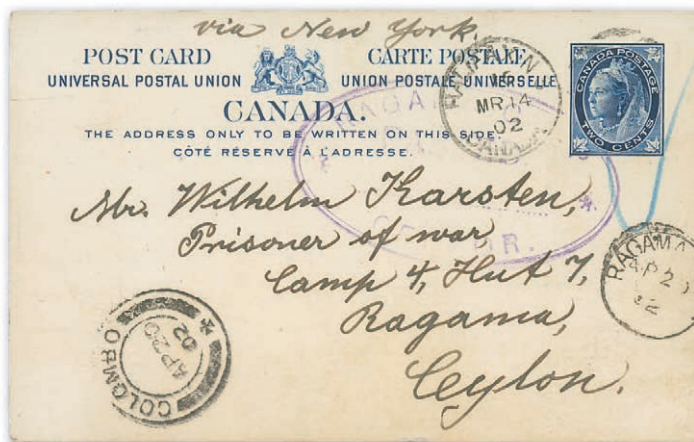 via New York.
POST CARD CARTE POSTALE
UNIVERSAL POSTAL UNION UNION POSTALE UNIVERSELLE
CANADA.
THE ADDRESS ONLY TO BE WRITTEN ON THIS SIDE.
CÔTÉ RÉSERVÉ À L'ADRESSE.
CANADA POSTAGE
TWO CENTS
MR 14
02
CANADA
Mr. Wilhelm Karsten,
Prisoner of war
Camp 4, Hut 7,
Ragama,
Ceylon.
RAGAMA
AP 2
COLOMBO
AP 20
02